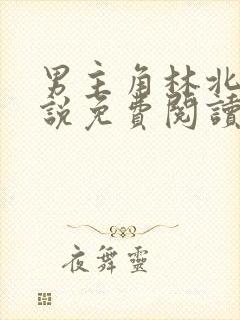 男主角林北
說免費閱讀
夜舞靈